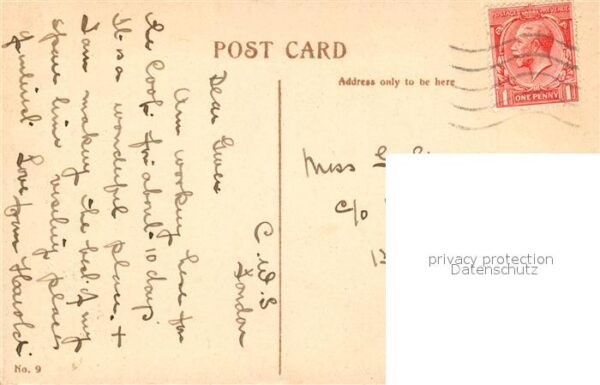 POST CARD
Address only to be here
POSTAGE REVENUE
ONE PENNY
1
1
C.W.S
London
Dear Gwen
Am working here for
the Coop. for about 10 days
It is a wonderful place. +
I am making the best of my
spare time visiting places
of interest. Love from Harold
Miss G.
c/o
No. 9
privacy protection
Datenschutz